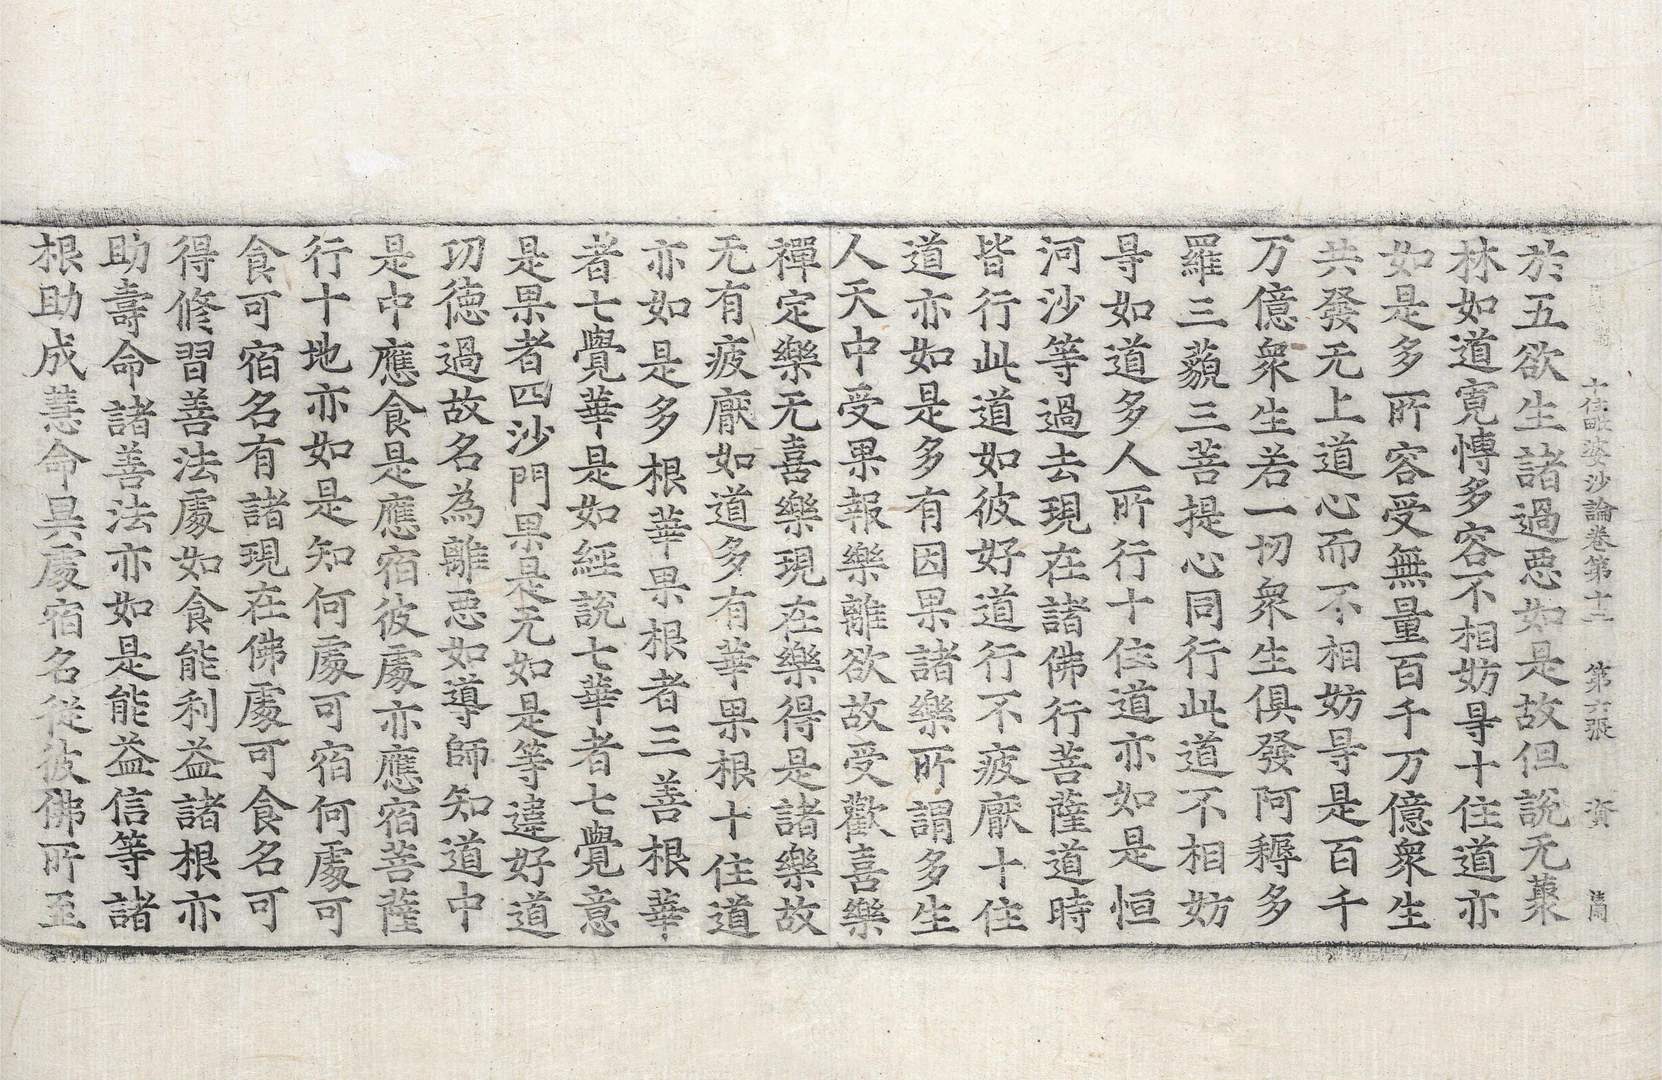 十住毗婆沙論卷第十二　第六張　資
於五欲生諸過惡如是故但說无藂
林如道寬愽多容不相妨㝵十住道亦
如是多所容受無量百千万億衆生
共發无上道心而不相妨㝵是百千
万億衆生若一切衆生俱發阿耨多
羅三藐三菩提心同行此道不相妨
㝵如道多人所行十住道亦如是恒
河沙等過去現在諸佛行菩薩道時
皆行此道如彼好道行不疲猒十住
道亦如是多有因果諸樂所謂多生
人天中受果報樂離欲故受歡喜樂
禪定樂无喜樂現在樂得是諸樂故
无有疲猒如道多有華果根十住道
亦如是多根華果根者三善根華
者七覺華是如經說七華者七覺意
是果者四沙門果是无如是等違好道
㓛德過故名為離惡如導師知道中
是中應食是應宿彼處亦應宿菩薩
行十地亦如是知何處可宿何處可
食可宿名有諸現在佛處可食名可
得修習善法處如食能利益諸根亦
助壽命諸善法亦如是能益信等諸
根助成慧命具處宿名從彼佛所至